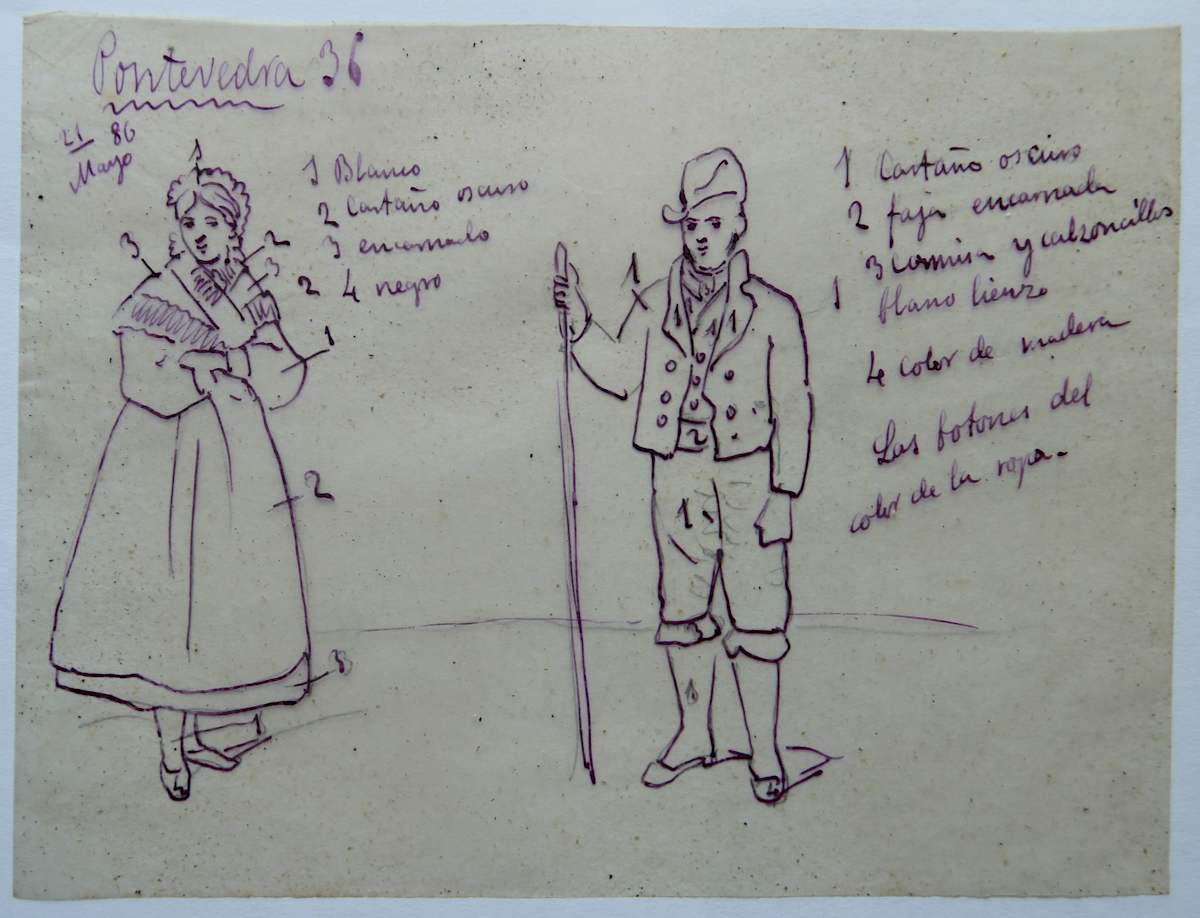 Pontevedra 36
21 86
Mayo
1 Blanco
2 Castaño oscuro
3 encarnado
2 4 negro
1 Castaño oscuro
2 faja encarnada
3 camisa y calzoncillos
1 blano lienzo
4 color de madera
Los botones del
color de la ropa.
1
3
2
3
1
2
3
4
1
1
1
1
2
1
1
4